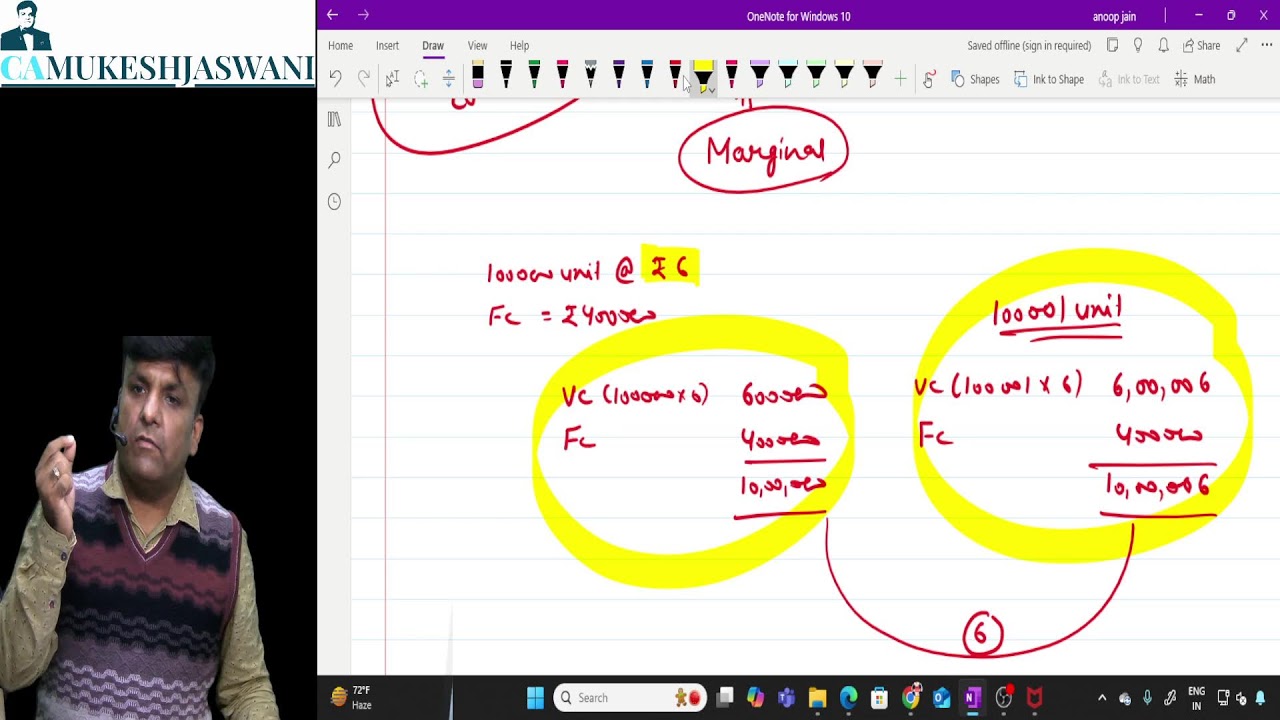 CAMUKESHJASWANI
OneNote for Windows 10
anoop jain
Home Insert Draw View Help
Saved offline (sign in required)
Share
Shapes
Ink to Shape
Ink to Text
Math
Marginal
100000 unit @ ₹ 6
Fc = ₹ 400000
VC (100000 x 6) 600000
Fc 400000
10,00,000
100001 unit
VC (100001 x 6) 6,00,006
Fc 400000
10,00,006
6
72°F
Haze
Search
ENG
IN